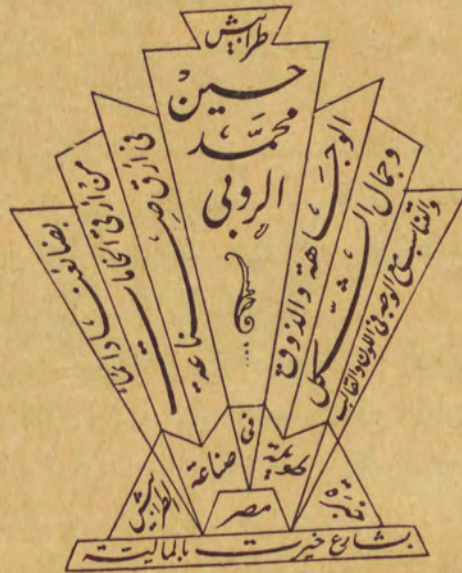 طرابيش
حسين
محمد
الروبي
الوجاهة والذوق
وجمال الشكل
والتناسب مع الوجه في اللون والقالب
في ارقى صناعة
من ارقى الخامات
طويلة
في
صناعة
الطرابيش
مصر
بشارع خيرت بالمالية